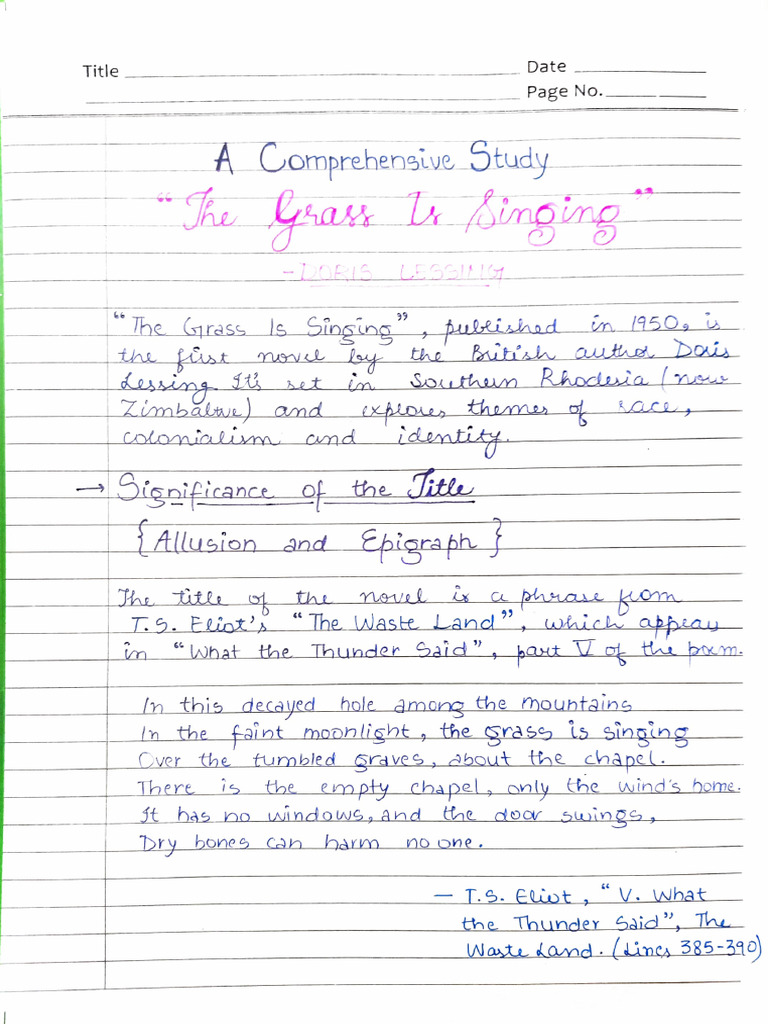 Title
Date
Page No.
A Comprehensive Study
"The Grass Is Singing"
- DORIS LESSING
"The Grass Is Singing", published in 1950, is
the first novel by the British author Doris
Lessing. It's set in Southern Rhodesia (now
Zimbabwe) and explores themes of race,
colonialism and identity.
→ Significance of the Title
{Allusion and Epigraph}
The title of the novel is a phrase from
T.S. Eliot's "The Waste Land", which appears
in "What the Thunder Said", part V of the poem.
In this decayed hole among the mountains
In the faint moonlight, the grass is singing
Over the tumbled graves, about the chapel.
There is the empty chapel, only the wind's home.
It has no windows, and the door swings,
Dry bones can harm no one.
— T.S. Eliot, "V. What
the Thunder Said", The
Waste Land. (Lines 385-390)